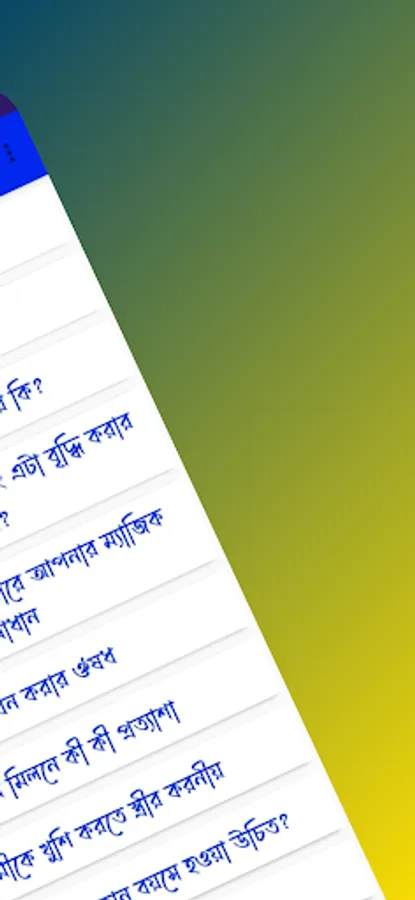 কি?
এটা বৃদ্ধি করার
?
আপনার ম্যাজিক
করার ঔষধ
মিলনে কী কী প্রত্যাশা
খুশি করতে স্ত্রীর করনীয়
বয়সে হওয়া উচিত?